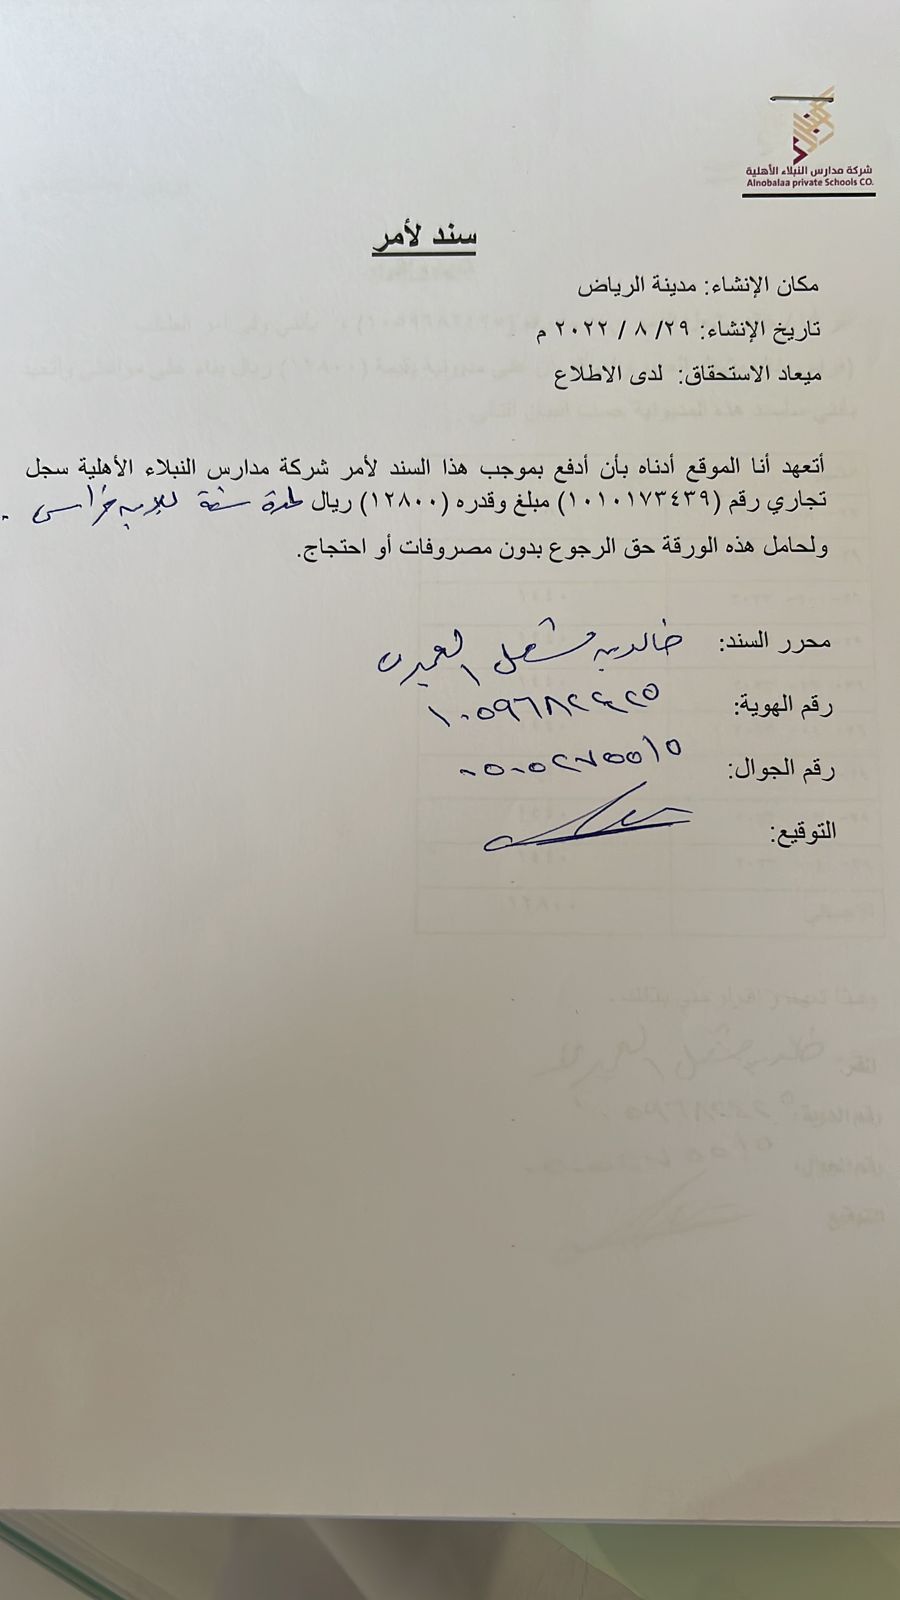 شركة مدارس النبلاء الأهلية
Alnobalaa private Schools CO.
سند لأمر
مكان الإنشاء: مدينة الرياض
تاريخ الإنشاء: ٢٩/ ٨ / ٢٠٢٢ م
ميعاد الاستحقاق: لدى الاطلاع
أتعهد أنا الموقع أدناه بأن أدفع بموجب هذا السند لأمر شركة مدارس النبلاء الأهلية سجل
تجاري رقم (١٠١٠١٧٣٤٣٩) مبلغ وقدره (١٢٨٠٠) ريال لمدة سنة
ولحامل هذه الورقة حق الرجوع بدون مصروفات أو احتجاج.
محرر السند: خالد بن مشعل
رقم الهوية:
رقم الجوال: ٠٥٠٥٢٧٥٥١٥
التوقيع: